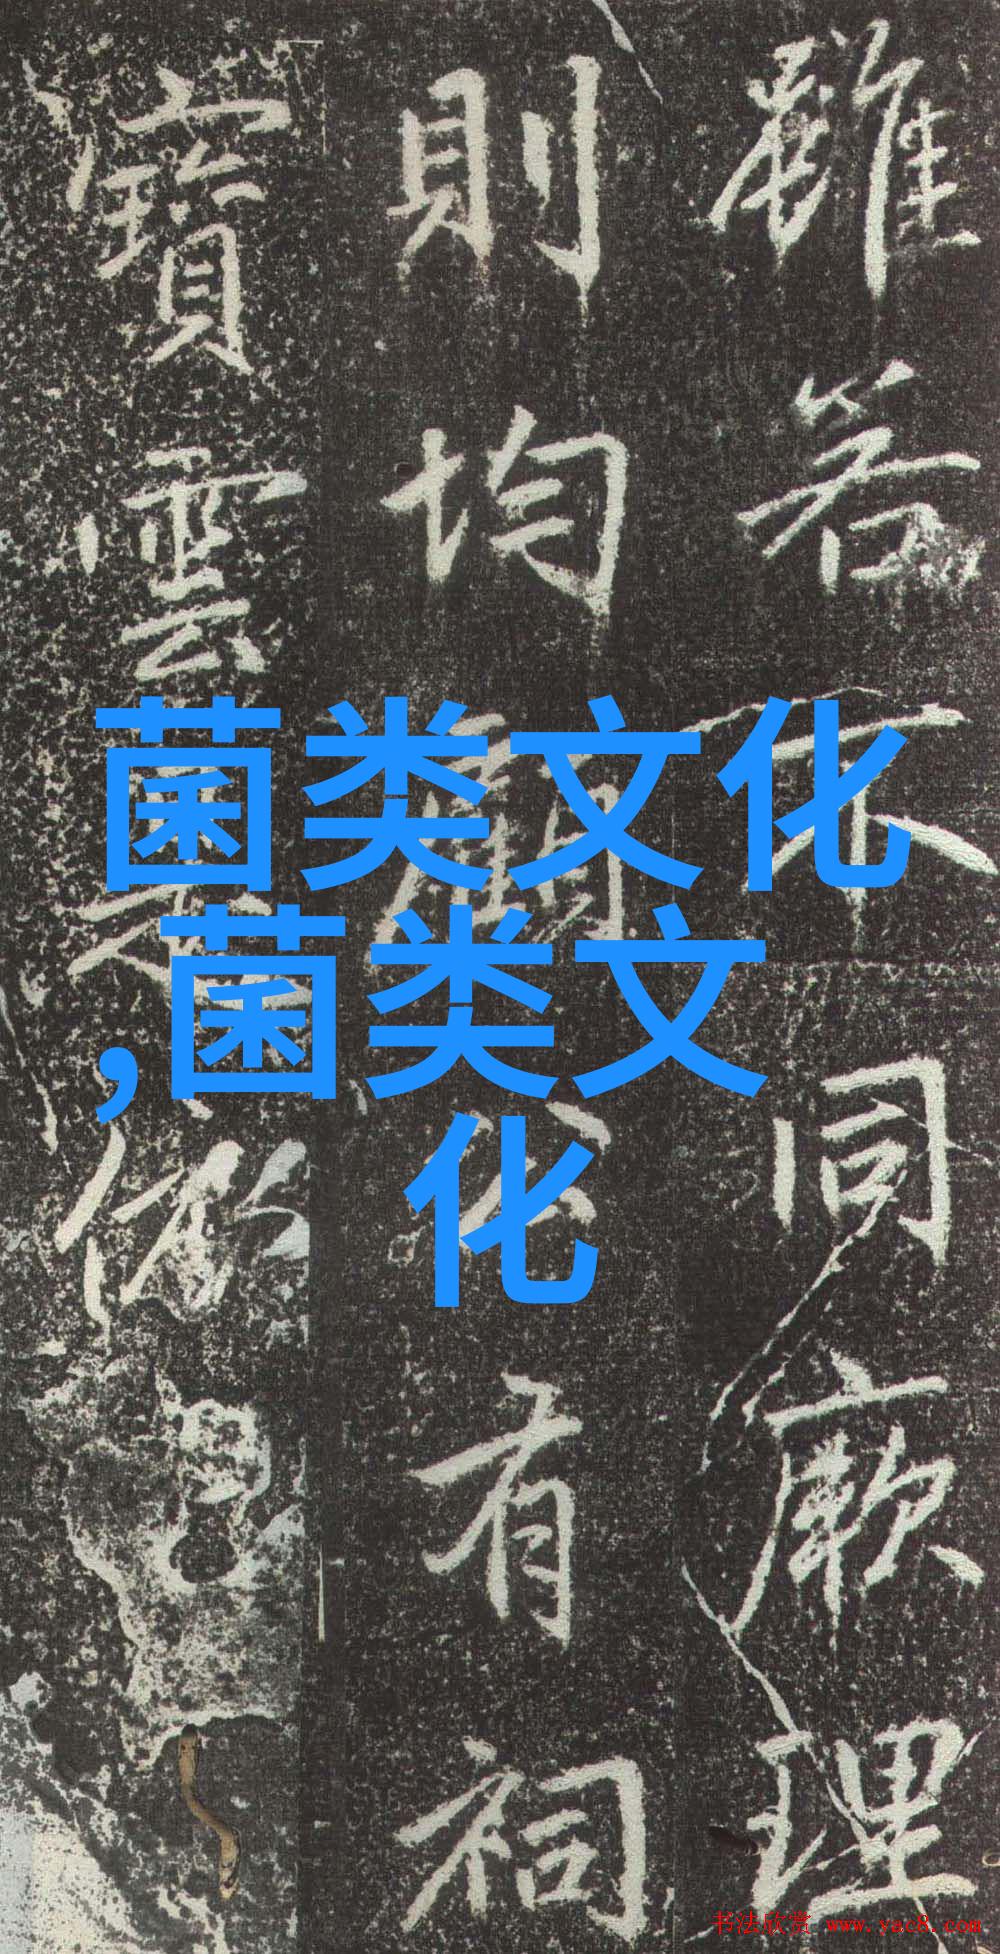 雖若不同厥理
則均有祠
寶雲
菌类文化
,菌类文
化
书法欣赏 www.yac8.com